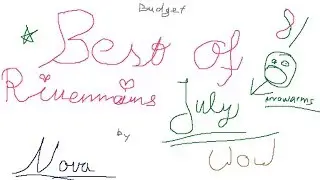 Budget
Best of
Rivenmains
July
arrowarms
by
Nova
Wow